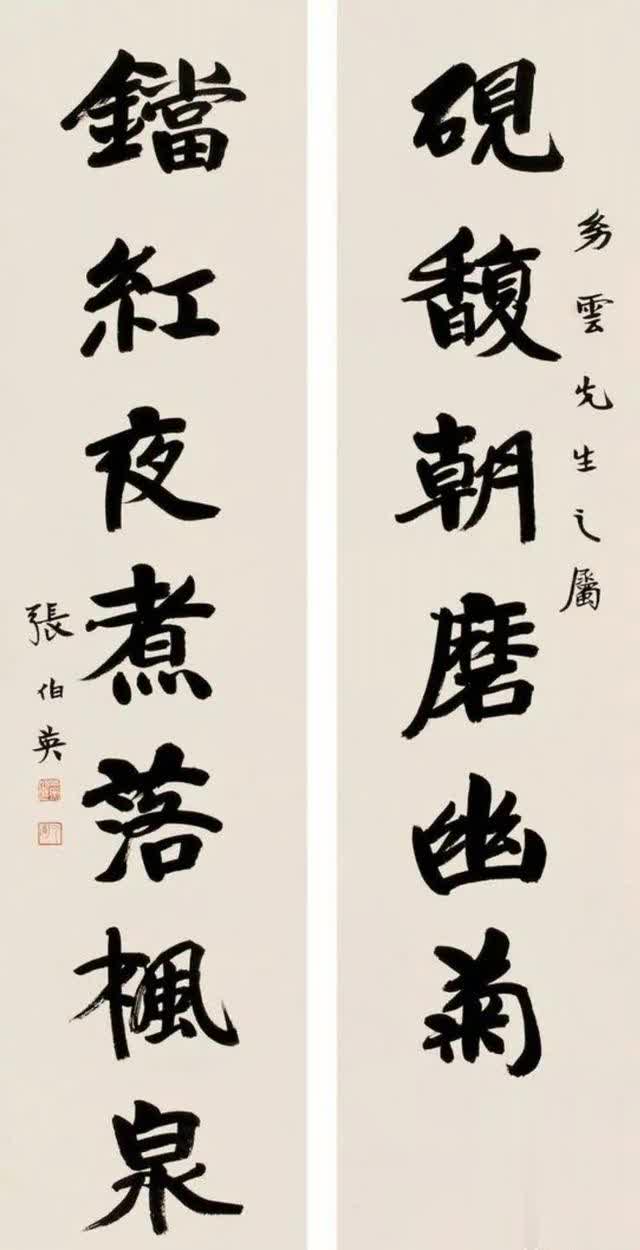 硯馥朝磨幽菊
雲先生之屬
鐺紅夜煮落楓泉
張伯英